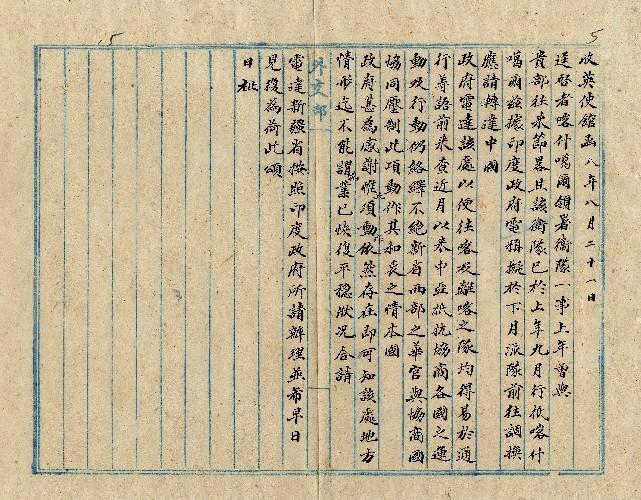 收英使館函八年八月二十一日
逕啓者喀什噶爾領署衛隊一事上年曾與
貴部往來節畧且該衛隊已於上年九月行抵喀什
噶爾玆據印度政府電稱擬於下月派隊前往調換
應請轉達中國
政府電達該處以便往喀及離喀之隊均得易於通
行等語前來查近月以來中亞抵抗協商各國之運
動及行動仍絡繹不絕新省西部之華官與協商國
協同壓制此項動作真和衷之情本國
政府甚為感謝惟項動依然存在即可知該處地方
情形迄不能謂業已恢復平穩狀況合請
外交部
電達新疆省按照印度政府所請辦理並希早日
見復為荷此頌
日祉
5
5